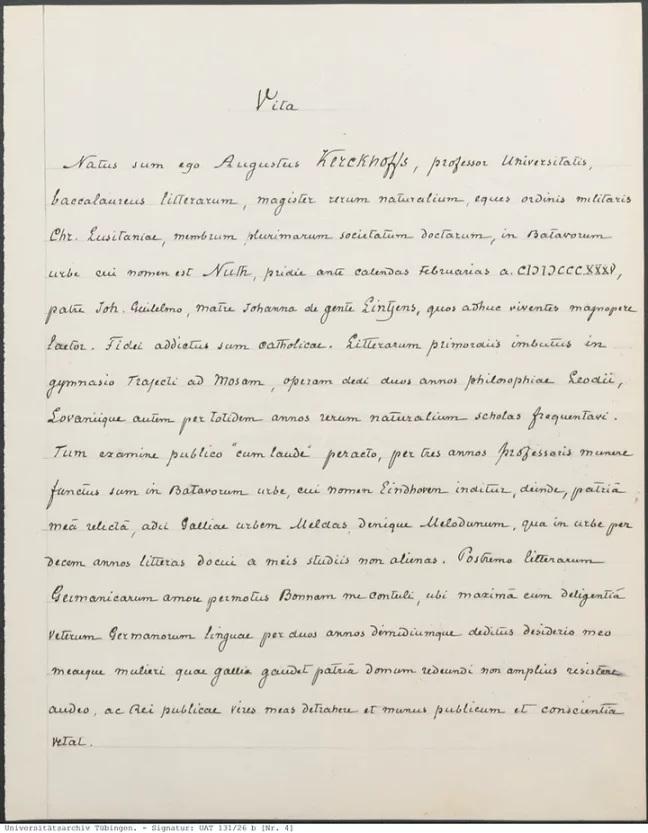 Vita
Natus sum ego Augustus Kerckhoffs, professor Universitatis,
baccalaureus litterarum, magister rerum naturalium, eques ordinis militaris
Chr. Lusitaniae, membrum plurimarum societatum doctarum, in Batavorum
urbe cui nomen est Nuth, pridie ante calendas Februarias a. CIƆIƆCCCXXXV,
patre Joh. Guilelmo, matre Johanna de gente Lintjens, quos adhuc viventes magnopere
laetor. Fidei addictus sum catholicae. Litterarum primordiis imbutus in
gymnasio Trajecti ad Mosam, operam dedi duos annos philosophiae Leodii,
Lovaniique autem per totidem annos rerum naturalium scholas frequentavi.
Tum examine publico "cum laude" peracto, per tres annos Professoris munere
functus sum in Batavorum urbe, cui nomen Eindhoven inditur, deinde, patriâ
meâ relictâ, adii Galliae urbem Meldas, denique Melodunum, qua in urbe per
decem annos litteras docui a meis studiis non alienas. Postremo litterarum
Germanicarum amore permotus Bonnam me contuli, ubi maximâ cum deligentiâ
veterum Germanorum linguae per duos annos dimidiumque deditus desiderio meo
meaeque mulieri quae galliâ gaudet patriâ domum redeundi non amplius resistere
audeo, ac Rei publicae vires meas detrahere et munus publicum et conscientia
vetat.
Universitätsarchiv Tübingen. - Signatur: UAT 131/26 b [Nr. 4]